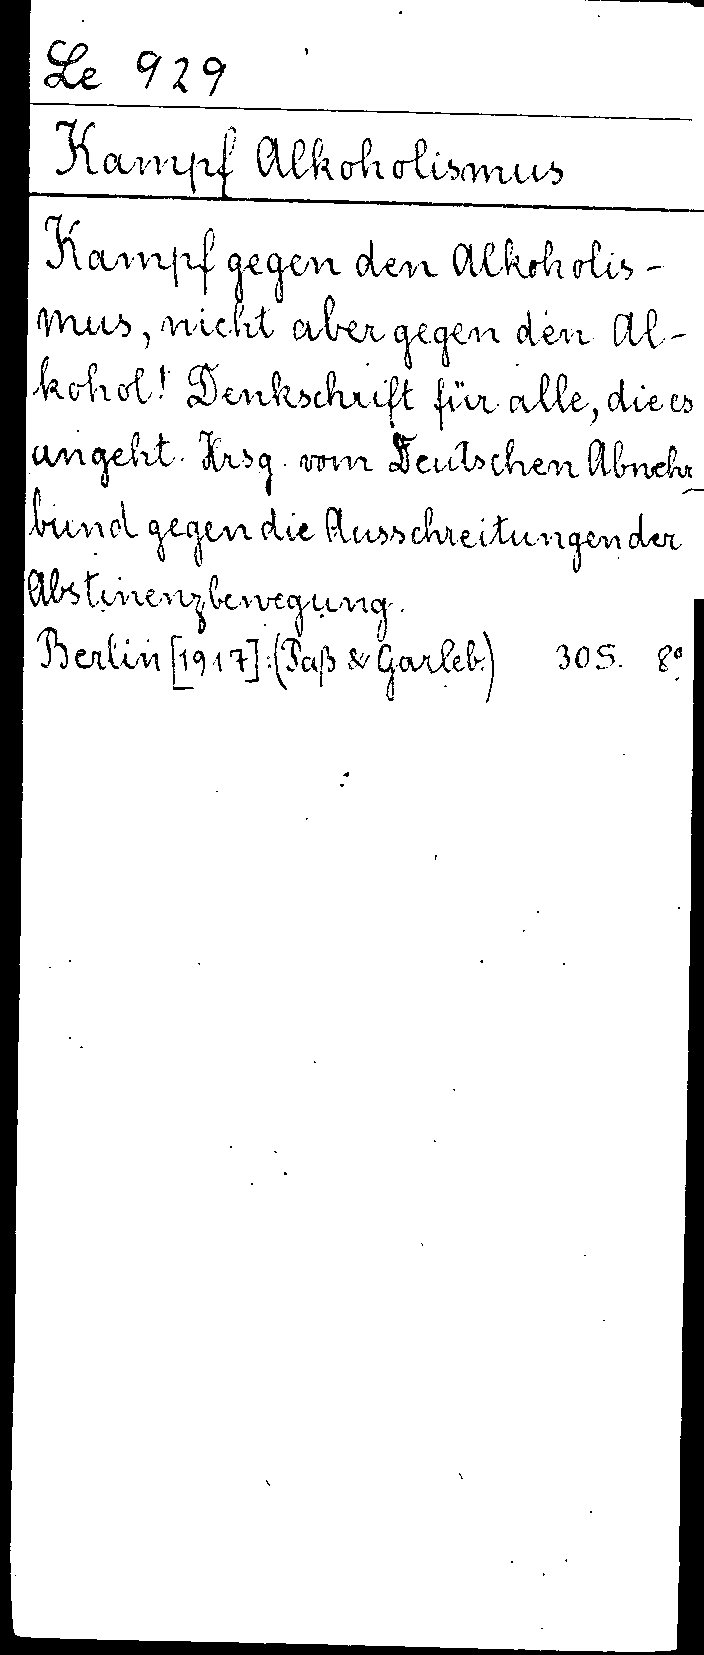 Le 929
Kampf Alkoholismus
Kampf gegen den Alkoholis-
mus, nicht aber gegen den Al-
kohol! Denkschrift für alle, die es
angeht. Hrsg. vom Deutschen Abwehr-
bund gegen die Ausschreitungen der
Abstinenzbewegung.
Berlin [1917]: (Paß & Garleb.) 30 S. 8°.